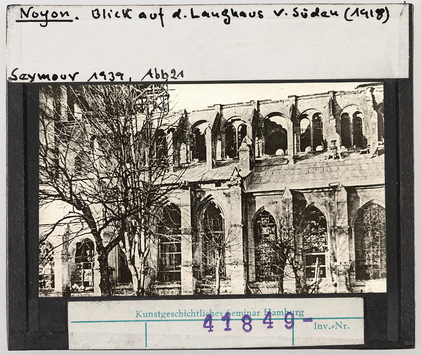 Noyon. Blick auf d. Langhaus v. Süden (1918)
Seymour 1939, Abb 21
Kunstgeschichtliches Seminar Hamburg
41849- Inv.-Nr.